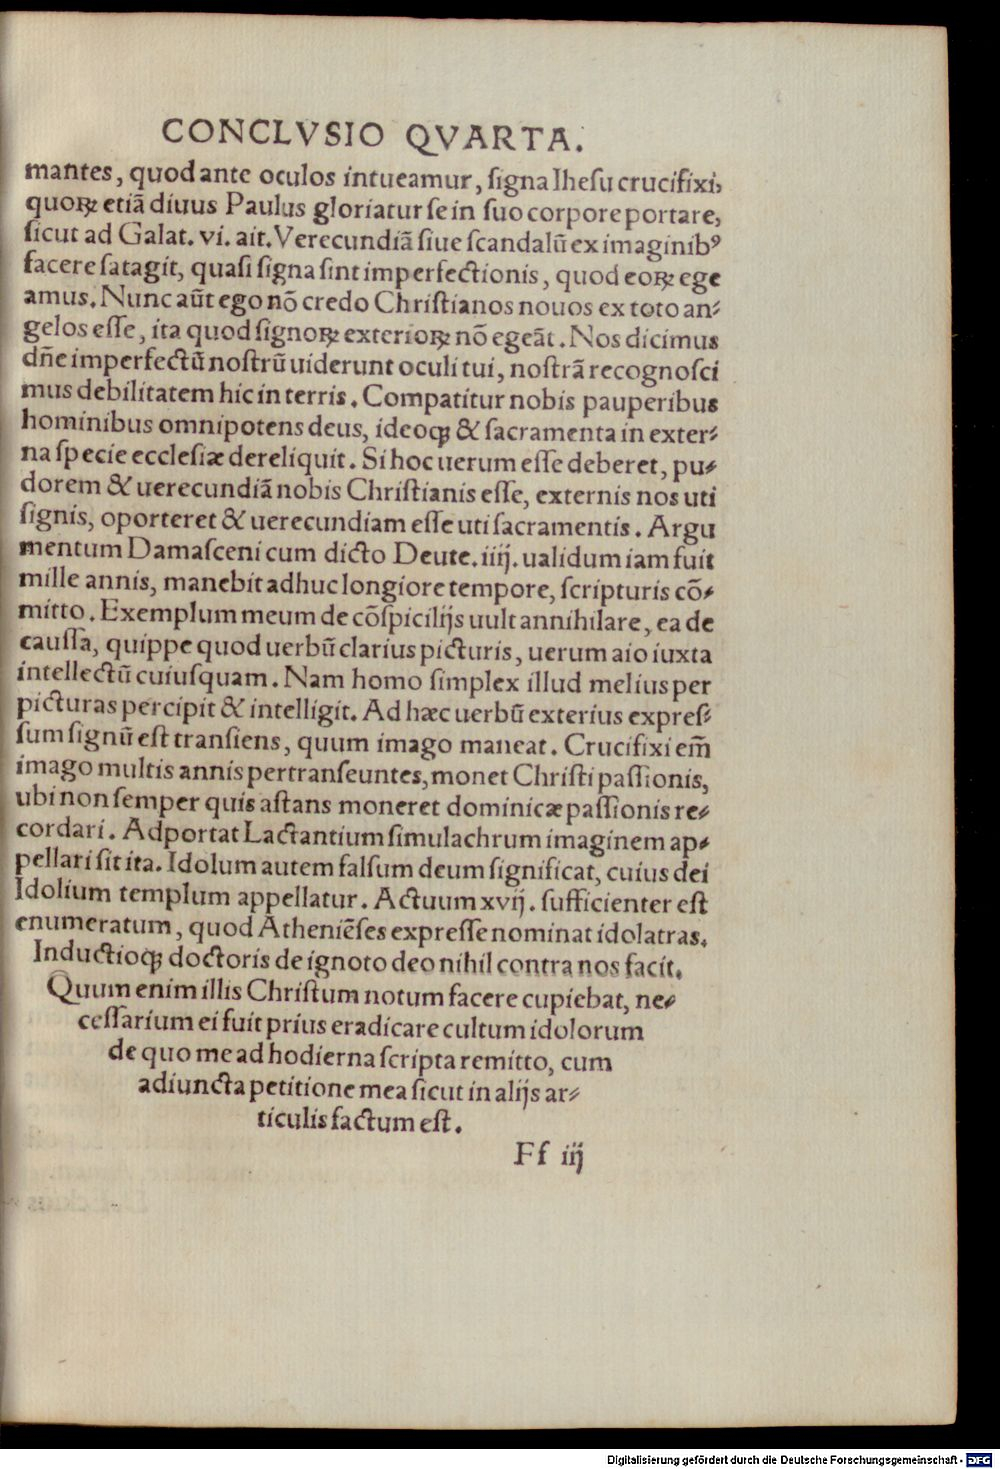 CONCLVSIO QVARTA.
mantes, quod ante oculos intueamur, ſigna Iheſu crucifixi,
quoꝝ etiā diuus Paulus gloriatur ſe in ſuo corpore portare,
ſicut ad Galat. vi. ait. Verecundiā ſiue ſcandalū ex imaginibꝰ
facere ſatagit, quaſi ſigna ſint imperfectionis, quod eoꝝ ege
amus. Nunc aūt ego nō credo Chriſtianos nouos ex toto an⸗
gelos eſſe, ita quod ſignoꝝ exterioꝝ nō egeāt. Nos dicimus
dn̄e imperfectū noſtrū uiderunt oculi tui, noſtrā recognoſci
mus debilitatem hic in terris. Compatitur nobis pauperibus
hominibus omnipotens deus, ideoq; & ſacramenta in exter⸗
na ſpecie eccleſiæ dereliquit. Si hoc uerum eſſe deberet, pu⸗
dorem & uerecundiā nobis Chriſtianis eſſe, externis nos uti
ſignis, oporteret & uerecundiam eſſe uti ſacramentis. Argu
mentum Damaſceni cum dicto Deute. iiij. ualidum iam fuit
mille annis, manebit adhuc longiore tempore, ſcripturis cō⸗
mitto. Exemplum meum de cōſpicilijs uult annihilare, ea de
cauſſa, quippe quod uerbū clarius picturis, uerum aio iuxta
intellectū cuiuſquam. Nam homo ſimplex illud melius per
picturas percipit & intelligit. Ad hæc uerbū exterius expreſ⸗
ſum ſignū eſt tranſiens, quum imago maneat. Crucifixi em̄
imago multis annis pertranſeuntes, monet Chriſti paſſionis,
ubi non ſemper quis aſtans moneret dominicæ paſſionis re⸗
cordari. Adportat Lactantium ſimulachrum imaginem ap⸗
pellari ſit ita. Idolum autem falſum deum ſignificat, cuius dei
Idolium templum appellatur. Actuum xvij. ſufficienter eſt
enumeratum, quod Atheniēſes expreſſe nominat idolatras.
Inductioq; doctoris de ignoto deo nihil contra nos facit.
Quum enim illis Chriſtum notum facere cupiebat, ne⸗
ceſſarium ei fuit prius eradicare cultum idolorum
de quo me ad hodierna ſcripta remitto, cum
adiuncta petitione mea ſicut in alijs ar⸗
ticulis factum eſt.
Ff iij
Digitalisierung gefördert durch die Deutsche Forschungsgemeinschaft - DFG